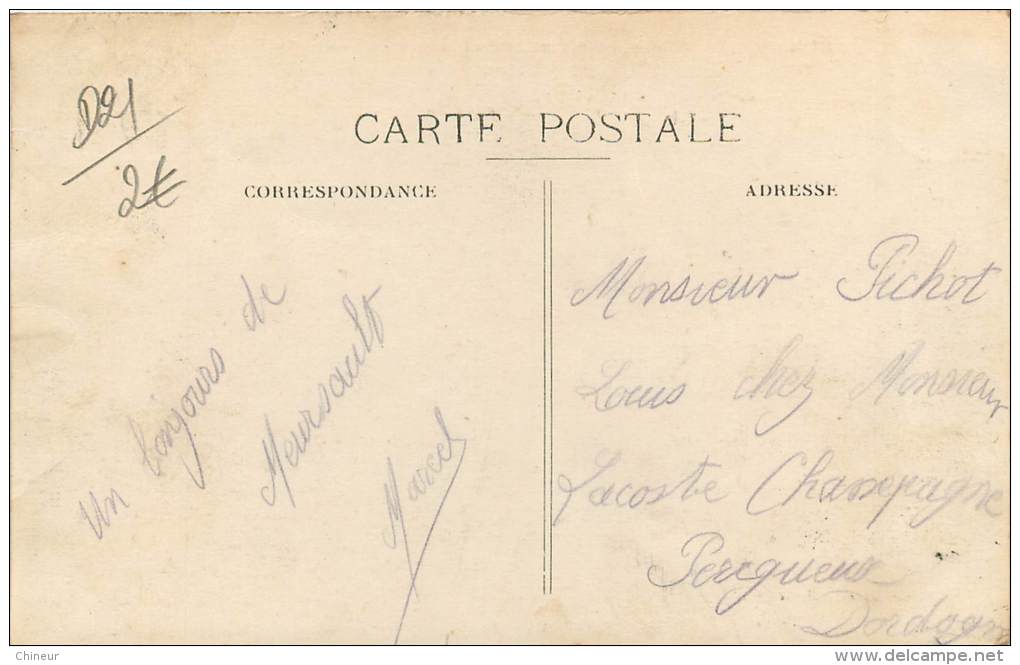 D21
2€
CARTE POSTALE
CORRESPONDANCE
ADRESSE
Un bonjours de
Meursault
Marcel
Monsieur Pichot
Louis chez Monsieur
Lacoste Champagne
Perigueux
Dordogn
Chineur
delcampe.net